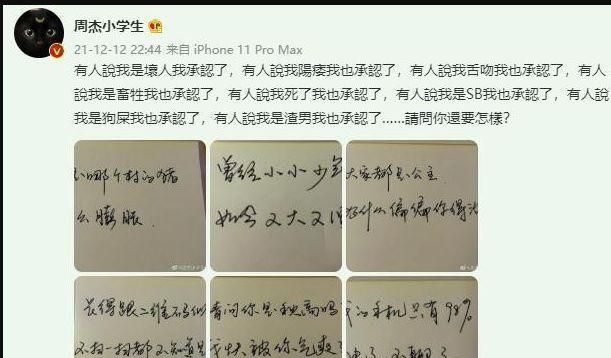 周杰小学生
21-12-12 22:44 来自 iPhone 11 Pro Max
有人說我是壞人我承認了，有人說我陽痿我也承認了，有人說我舌吻我也承認了，有人
說我是畜牲我也承認了，有人說我死了我也承認了，有人說我是SB我也承認了，有人說
我是狗屎我也承認了，有人說我是渣男我也承認了……請問你還要怎樣？
哪个村的猪
么膨胀
曾经小小少年
如今又大又
大家都是公主
为什么偏偏你得
长得跟二维码似
不扫一扫都不知道是
请问你是秋高吗
我快被你气爽了
的手机只有98%